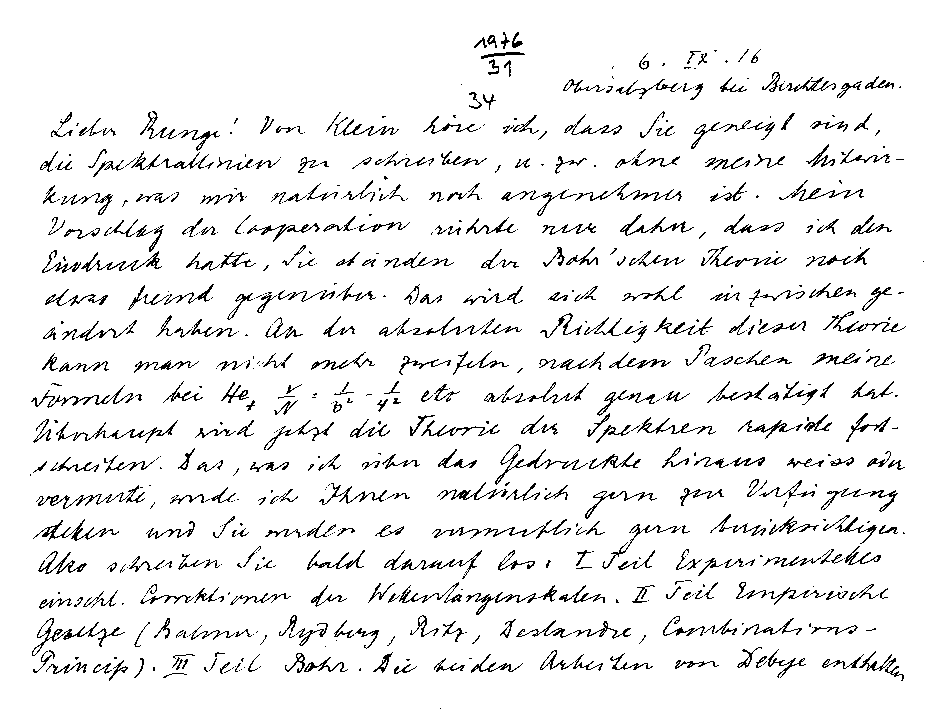 1976
31
34
6. IX. 16
Obersalzberg bei Berchtesgaden.
Lieber Runge! Von Klein höre ich, dass Sie geneigt sind,
die Spektrallinien zu schreiben, u. zw. ohne meine Mitwir-
kung, was mir natürlich noch angenehmer ist. Mein
Vorschlag der Cooperation rührte nur daher, dass ich den
Eindruck hatte, Sie ständen der Bohr'schen Theorie noch
etwas fremd gegenüber. Das wird sich wohl inzwischen ge-
ändert haben. An der absoluten Richtigkeit dieser Theorie
kann man nicht mehr zweifeln, nachdem Paschen meine
Formeln bei He+ ν/N = 1/3² - 1/4² etc absolut genau bestätigt hat.
Überhaupt wird jetzt die Theorie der Spektren rapide fort-
schreiten. Das, was ich über das Gedruckte hinaus weiss oder
vermute, werde ich Ihnen natürlich gern zur Verfügung
stellen und Sie werden es vermutlich gern berücksichtigen.
Also schreiben Sie bald darauf los: I Teil Experimentelles
einschl. Correktionen der Wellenlängenskalen. II Teil Empirische
Gesetze (Balmer, Rydberg, Ritz, Deslandre, Combinations-
Princip). III Teil Bohr. Die beiden Arbeiten von Debye enthalten